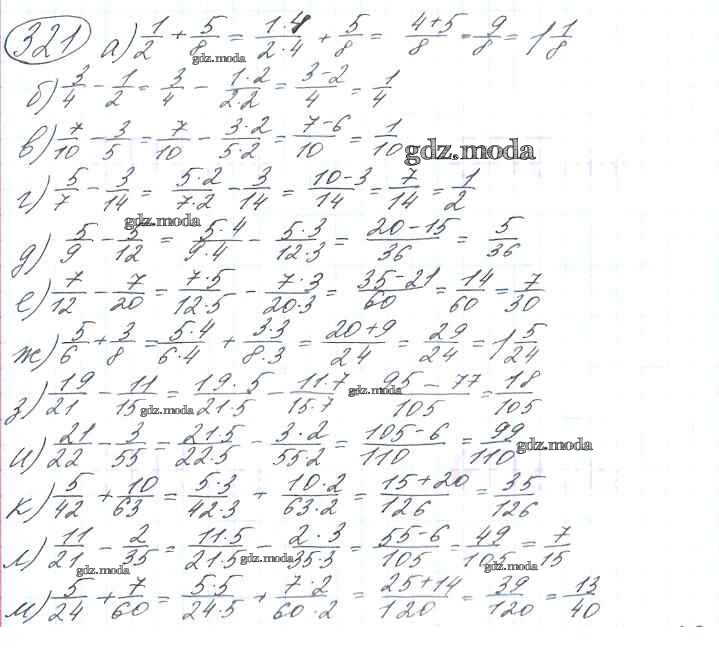 321 а) 1/2 + 5/8 = 1·4/2·4 + 5/8 = 4+5/8 = 9/8 = 1 1/8
gdz.moda
б) 3/4 - 1/2 = 3/4 - 1·2/2·2 = 3-2/4 = 1/4
в) 7/10 - 3/5 = 7/10 - 3·2/5·2 = 7-6/10 = 1/10
gdz.moda
г) 5/7 - 3/14 = 5·2/7·2 - 3/14 = 10-3/14 = 7/14 = 1/2
gdz.moda
д) 5/9 - 5/12 = 5·4/9·4 - 5·3/12·3 = 20-15/36 = 5/36
е) 7/12 - 7/20 = 7·5/12·5 - 7·3/20·3 = 35-21/60 = 14/60 = 7/30
ж) 5/6 + 3/8 = 5·4/6·4 + 3·3/8·3 = 20+9/24 = 29/24 = 1 5/24
з) 19/21 - 11/15 = 19·5/21·5 - 11·7/15·7 = 95-77/105 = 18/105
gdz.moda
gdz.moda
и) 21/22 - 3/55 = 21·5/22·5 - 3·2/55·2 = 105-6/110 = 99/110
gdz.moda
к) 5/42 + 10/63 = 5·3/42·3 + 10·2/63·2 = 15+20/126 = 35/126
л) 11/21 - 2/35 = 11·5/21·5 - 2·3/35·3 = 55-6/105 = 49/105 = 7/15
gdz.moda
gdz.moda
gdz.moda
м) 5/24 + 7/60 = 5·5/24·5 + 7·2/60·2 = 25+14/120 = 39/120 = 13/40